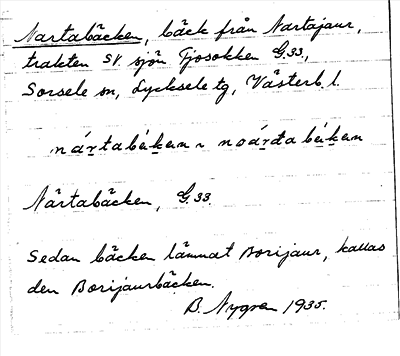 Nartabäcken, bäck från Nartajaur,
trakten SV. sjön Tjosokken G.33,,
Sorsele sn, Lycksele tg, Västerb. l.
nárt̯abék̯en ~ noárt̯a bék̯en
Nårtabäcken, G.33.
Sedan bäcken lämnat Borijaur, kallas
den Borijaurbäcken.
B. Nygren 1935.